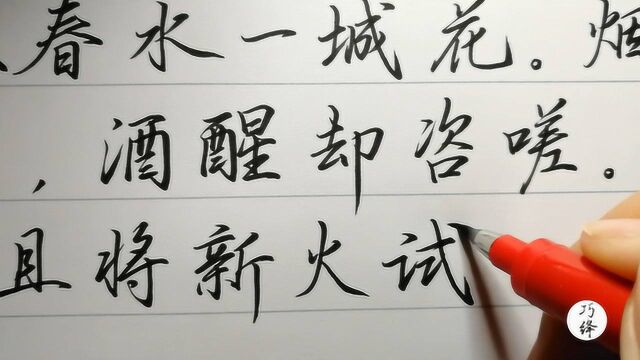 春水一城花。烟
，酒醒却咨嗟。
且将新火试
巧绎